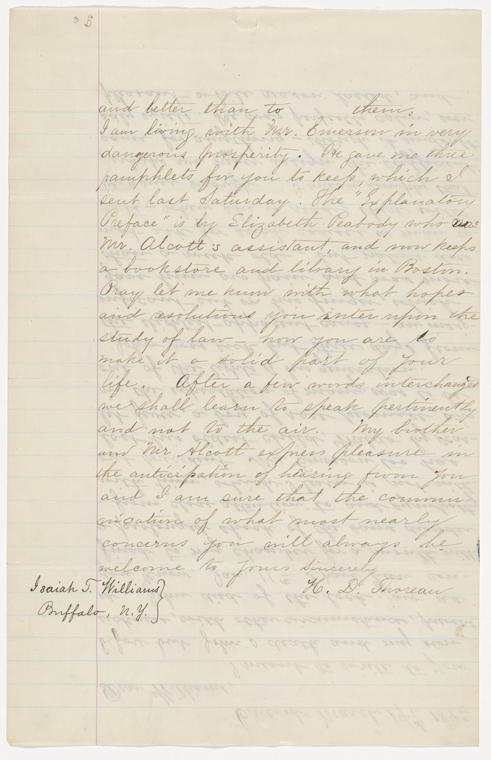 3
and better than to them.
I am living with Mr. Emerson in very
dangerous prosperity. He gave me three
pamphlets for you to keep, which I
sent last Saturday. The "Explanatory
Preface" is by Elizabeth Peabody who was
Mr. Alcott's assistant, and now keeps
a bookstore and library in Boston.
Pray let me know with what hopes
and resolutions you enter upon the
study of law – how you are to
make it a solid part of your
life. After a few words interchanged
we shall learn to speak pertinently
and not to the air. My brother
and Mr Alcott express pleasure in
the anticipation of hearing from you
and I am sure that the commu
nication of what most nearly
concerns you will always be
welcome to Yours Sincerely
H. D. Thoreau
Isaiah T. Williams }
Buffalo, N.Y. }